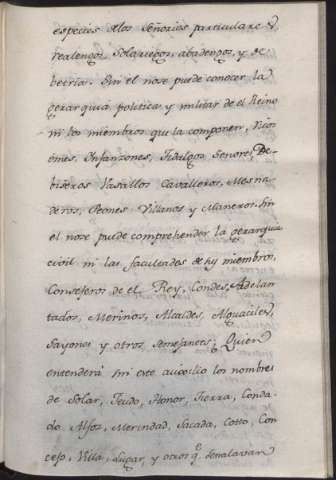 especies de los Señorios particulares
realengos, solariegos, abadengos, y be
betria. Sin el nose puede conocer la
gerarquia politica y militar de el Reino
ni los miembros que la componen, Ricos
omes, Infanzones, Fidalgos Senores, De
biseros Vasallos Cavalleros, Mesna
deros, Peones Villanos y Maneros. Sin
el nose puede comprehender la gerarquia
civil ni las facultades de sus miembros,
Consejeros de el Rey, Condes, Adelan
tados, Merinos, Alcaldes, Alguaciles,
Sayones y otros semejantes; Quien
entenderá sin este auxilio los nombres
de Solar, Feudo, Honor, Tierra, Conda
do Alfoz, Merindad, Sacada, Coto, Con
cejo, Villa, Lugar, y otros q.e señalavan